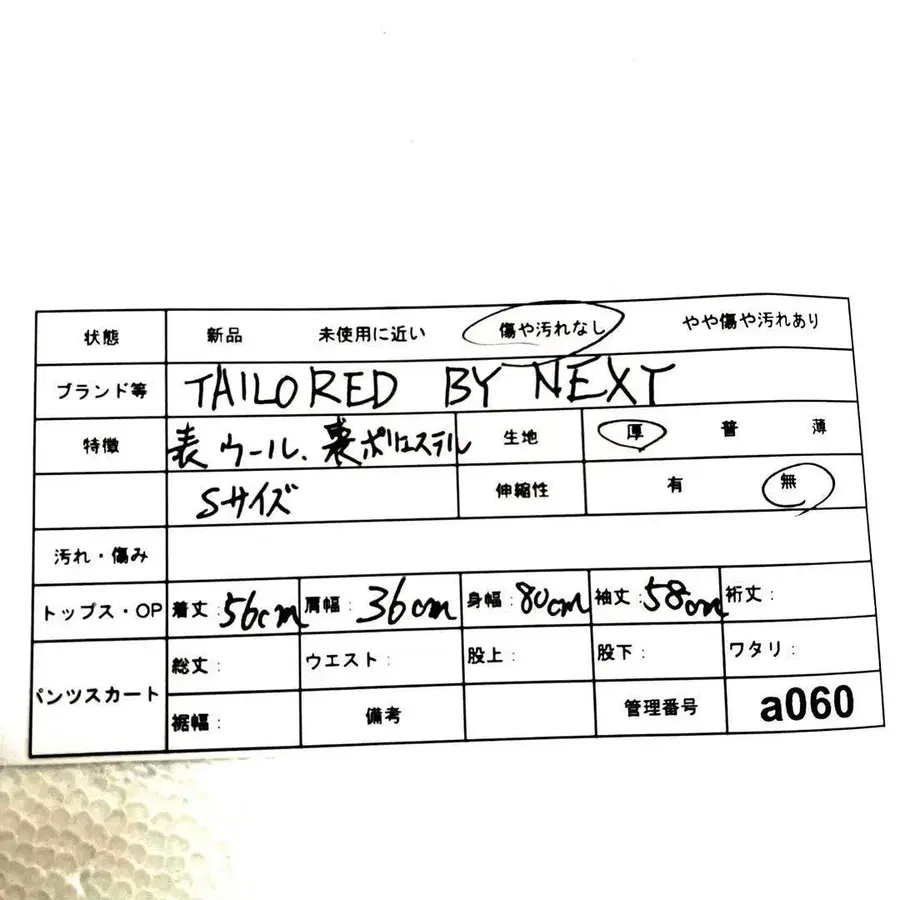 状態 新品 未使用に近い 傷や汚れなし やや傷や汚れあり
ブランド等 TAILORED BY NEXT
特徴 表ウール、裏ポリエステル 生地 厚 普 薄
Sサイズ 伸縮性 有 無
汚れ・傷み
トップス・OP 着丈:56cm 肩幅:36cm 身幅:80cm 袖丈:58cm 裄丈:
パンツスカート 総丈: ウエスト: 股上: 股下: ワタリ:
裾幅: 備考 管理番号 a060